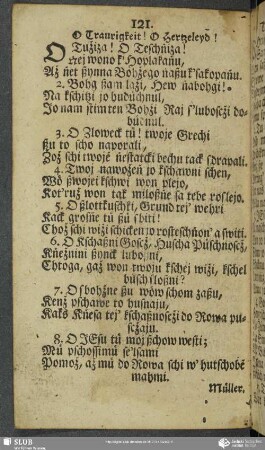 121.
O Traurigkeit! O Hertzeleyd!
O Tužiza! O Teschńiza!
nej wono k' Hoplakańu,
Až ńet ßynna Bohžego naßu k'sakopańu.
2. Bohg ßam laži, Hew nabohgi!
Na kschitzi jo huduchnul,
Jo nam stim ten Bohži Raj s'luboseži dobuchnul.
3. O Zloweck tu! twoje Grechi
ßu to scho naporali,
Zož schi twojé ńeskarcki bechu tack sdrapali.
4. Twoj nawożeń jo kschawni schen,
Wó ßwojei kschwi won plejo,
Kot'ruž won tak miloßtńe sa tebe roslejo.
5. Oßlottkuschki, Grund tej' wehri
Kack grosńe tú ßú sbiti!
Chož schi wiži schicken jo roskeschńon' a switi.
6. O Kschaßni Gosez, Huscha Púschnosez,
Kńeżnimi ßynck lubozni,
Chtoga, gaž won twoju kschej wiži, kschel
busch slozni?
7. O sbohžne ßu wòwschom zaßu,
Kenž pschawe to husnaju,
Kaks Kńesa tej' kschaßnoseži do Rowa puseżaju.
8. O JEsu tú moj ßchow westi;
Mú pschoßimú se'lsami
Pomož, až mú do Rowa schi w' hutschobé
mahmi.
Müller.
SLUB